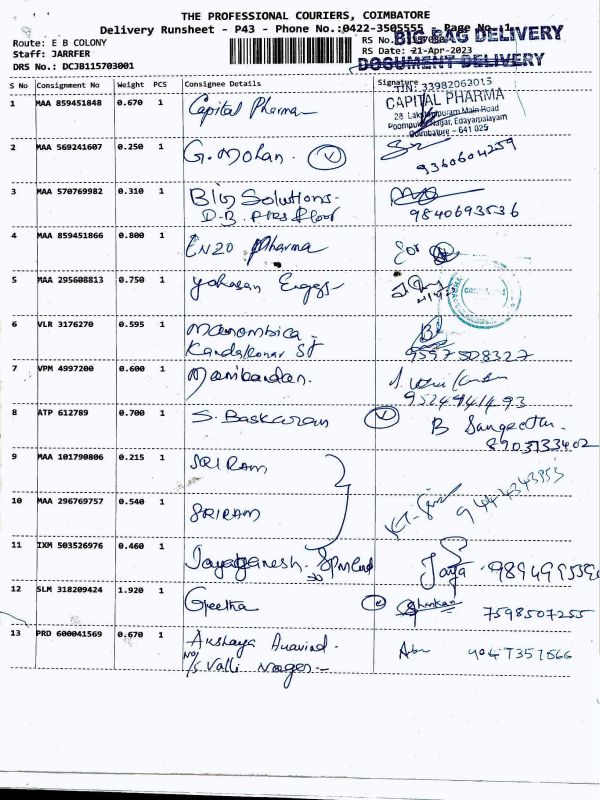 THE PROFESSIONAL COURIERS, COIMBATORE
Delivery Runsheet - P43 - Phone No.:0422-3505555 Page No.:1
Route: E B COLONY
RS No.
BIG BAG DELIVERY
Staff: JARRFER
RS Date: 21-Apr-2023
DRS No.: DCJB115703001
DOCUMENT DELIVERY
S No Consignment No Weight PCS Consignee Details Signature
TIN: 33982062015
1 MAA 859451848 0.670 1 Capital Pharma
CAPITAL PHARMA
28 Lakshmipuram Main Road
Poompuhar Nagar, Edayarpalayam
Coimbatore - 641 025
2 MAA 569241607 0.250 1 G. Mohan. V
9360604259
3 MAA 570769982 0.310 1 Big Solutions-
D-B floor 9840693536
4 MAA 859451866 0.800 1 Enzo Pharma For
5 MAA 295608813 0.750 1 Yohasan Enggs-
6 VLR 3176270 0.595 1 Manombica -
Kandakonar St 9597508327
7 VPM 4997200 0.600 1 Manibandan.
9524941493
8 ATP 612789 0.700 1 S. Baskaran B Sangeetha.
8903133402
9 MAA 101790806 0.215 1 SRI RAM
9444343953
10 MAA 296769757 0.540 1 SRIRAM
11 IXM 503526976 0.460 1 Jayaganesh. Jaya
12 SLM 318209424 1.920 1 Geetha
7598507255
13 PRD 600041569 0.670 1 Akshaya Aravind.
Valli Nager-